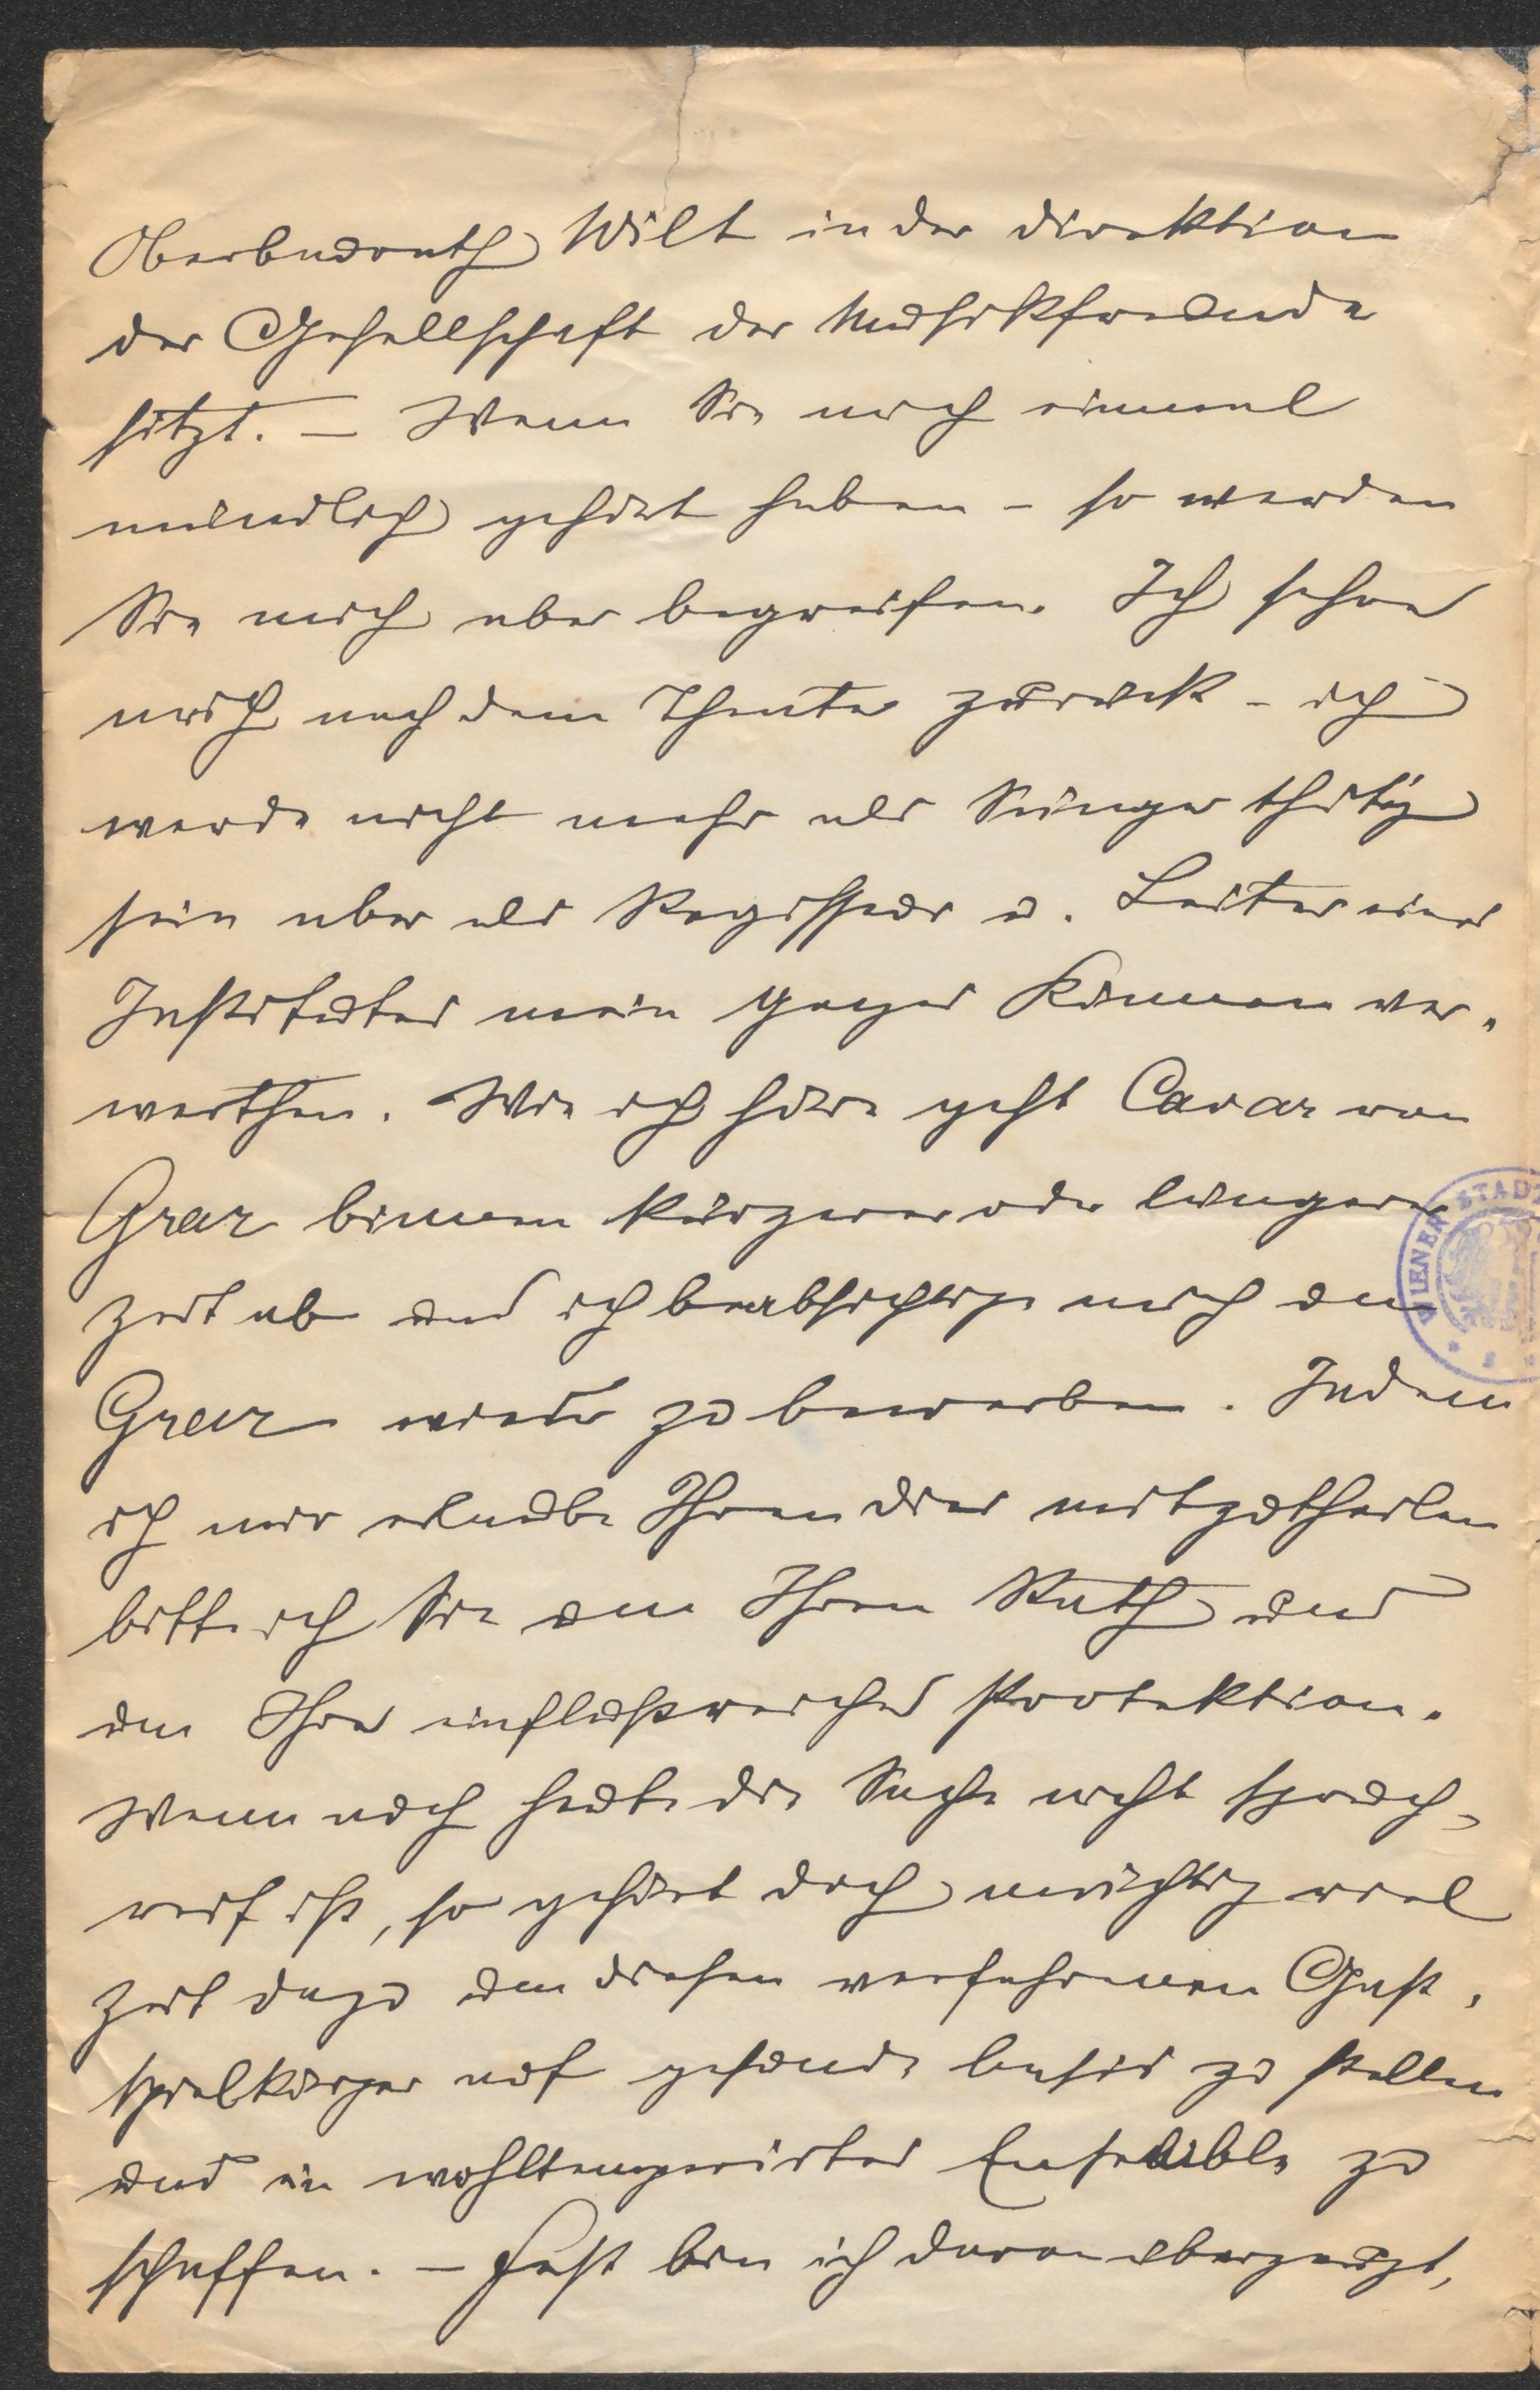 Oberbaurath Wilt in der Direktion
der Gesellschaft der Musikfreunde
sitzt. – Wenn Sie mich einmal
mündlich gehört haben – so werden
Sie mich aber begreifen. Ich sehne
mich nach dem Theater zurück – ich
werde nicht mehr als Sänger thätig
sein aber als Regisseur u. Leiter eines
Institutes mein ganzes Können ver-
werthen. Wie ich höre geht Cavar von
Graz binnen kürzerer oder längerer
Zeit ab und ich beabsichtige mich um
Graz wieder zu bewerben. Indem
ich mir erlaube Ihnen dies mitzutheilen
bitte ich Sie um Ihren Rath und
um Ihre einflußreiche Protektion.
Wenn auch heute die Sache nicht spruch-
reif ist, so gehört doch mächtig viel
Zeit dazu um diesen verfahrenen Gast-
spielkörper auf gesunde Basis zu stellen
und ein wohltemperirtes Ensemble zu
schaffen. – Fest bin ich davon überzeugt,
WIENER STADT